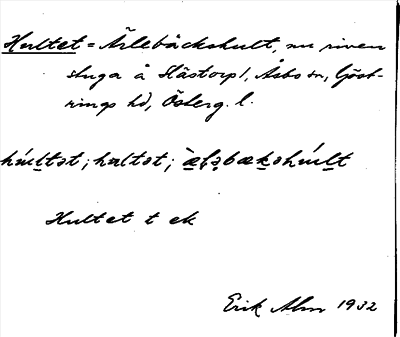 Hultet = Ärlebäckshult, nu riven
stuga å Hästorp 1, Åsbo sn, Göst-
rings hd, Österg. l.
hultet; haltet;
Hultet t ek
Erik Alm 1932